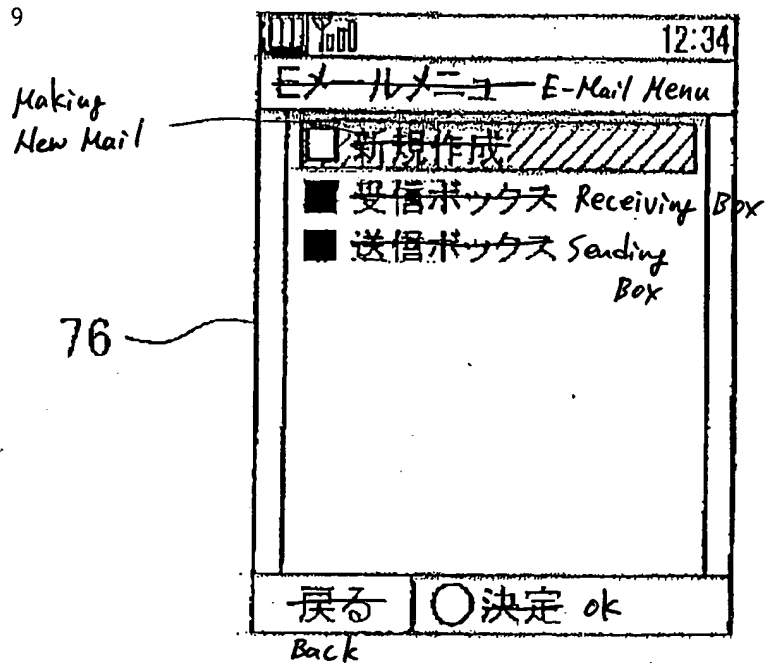 9
12:34
Eメールメニュー E-Mail Menu
Making
New Mail
新規作成
受信ボックス Receiving Box
送信ボックス Sending
Box
76
戻る 決定 ok
Back